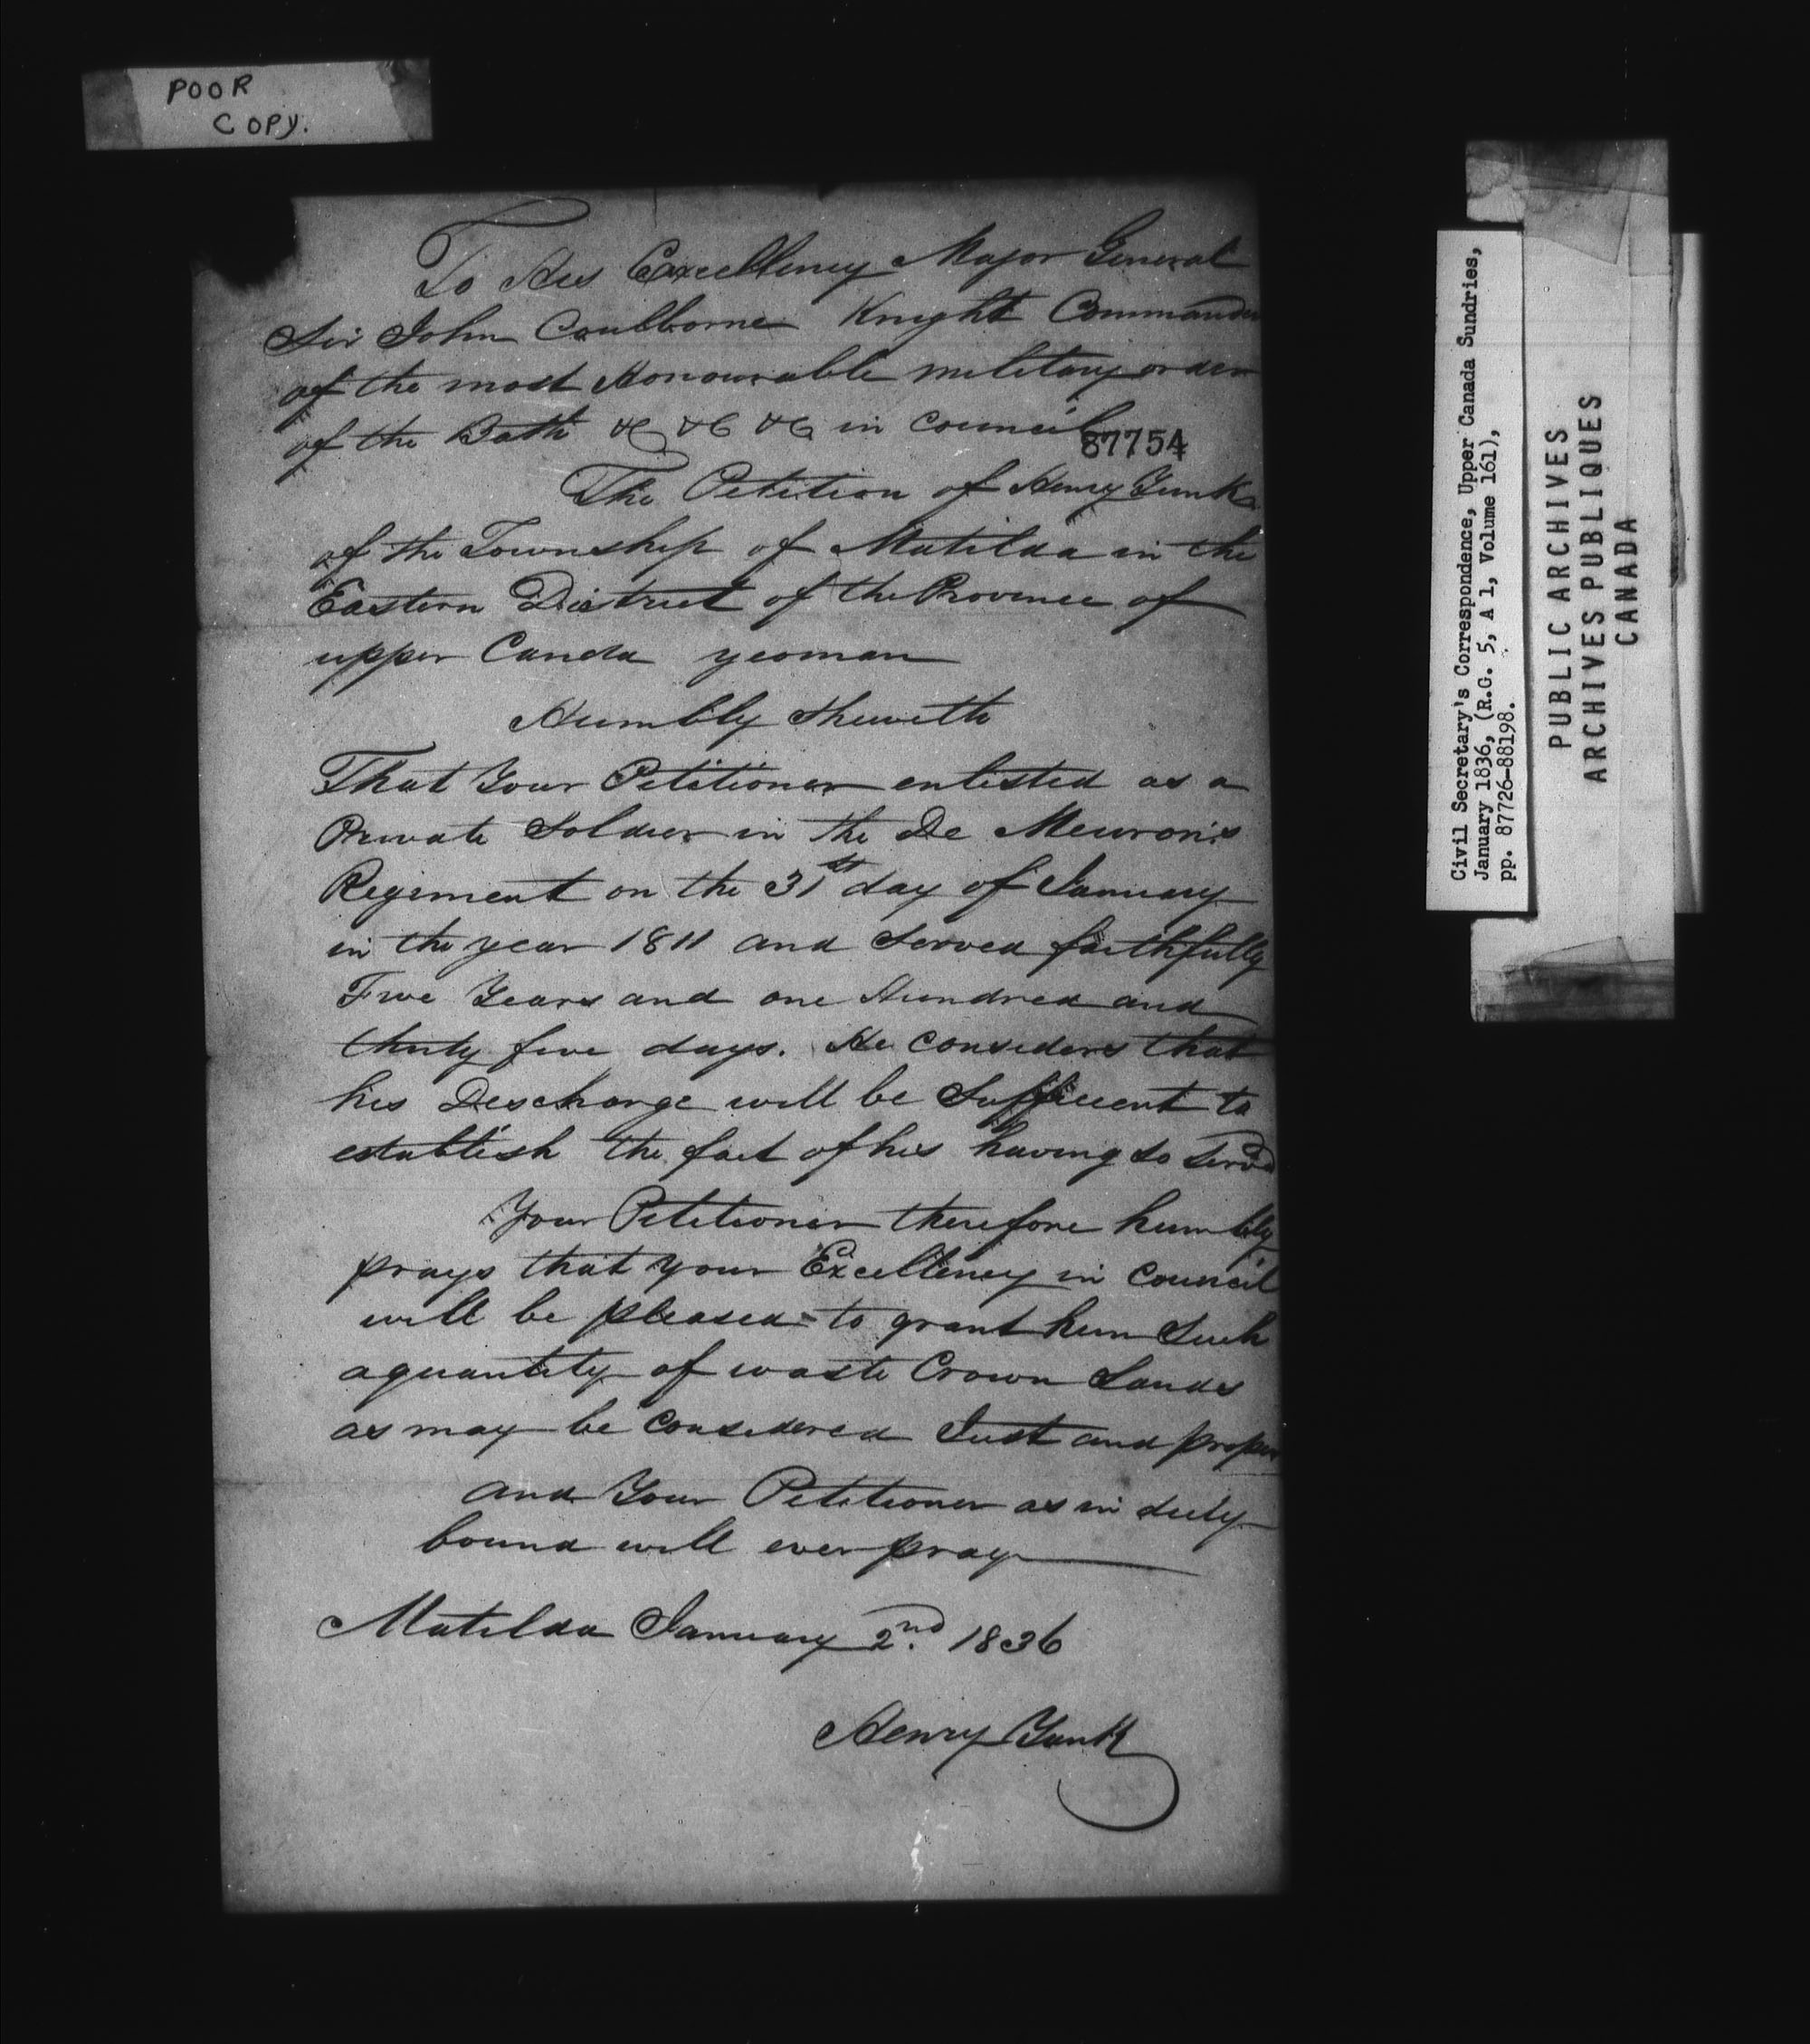 POOR
COPY.
To His Excellency Major General
Sir John Coulborne Knight Commander
of the most Honourable military order
of the Bath &C &C &C in Council
87754
The Petition of Henry Yunk
of the Township of Matilda in the
Eastern District of the Province of
upper Canda yeoman
Humbly Sheweth
That Your Petitioner enlisted as a
Private Soldier in the De Meuron's
Regiment on the 31st day of January
in the year 1811 and Served faithfully
Five Years and one Hundred and
thirty five days. He Considers that
his Discharge will be Sufficient to
establish the fact of his having so Served
Your Petitioner therefore humbly
prays that your Excellency in Council
will be pleased to grant him Such
a quantity of waste Crown Lands
as may be Considered Just and proper
and Your Petitioner as in duty
bound will ever pray
Matilda January 2nd. 1836
Henry Yunk
Civil Secretary's Correspondence, Upper Canada Sundries,
January 1836, (R.G. 5, A 1, Volume 161),
pp. 87726-88198.
PUBLIC ARCHIVES
ARCHIVES PUBLIQUES
CANADA